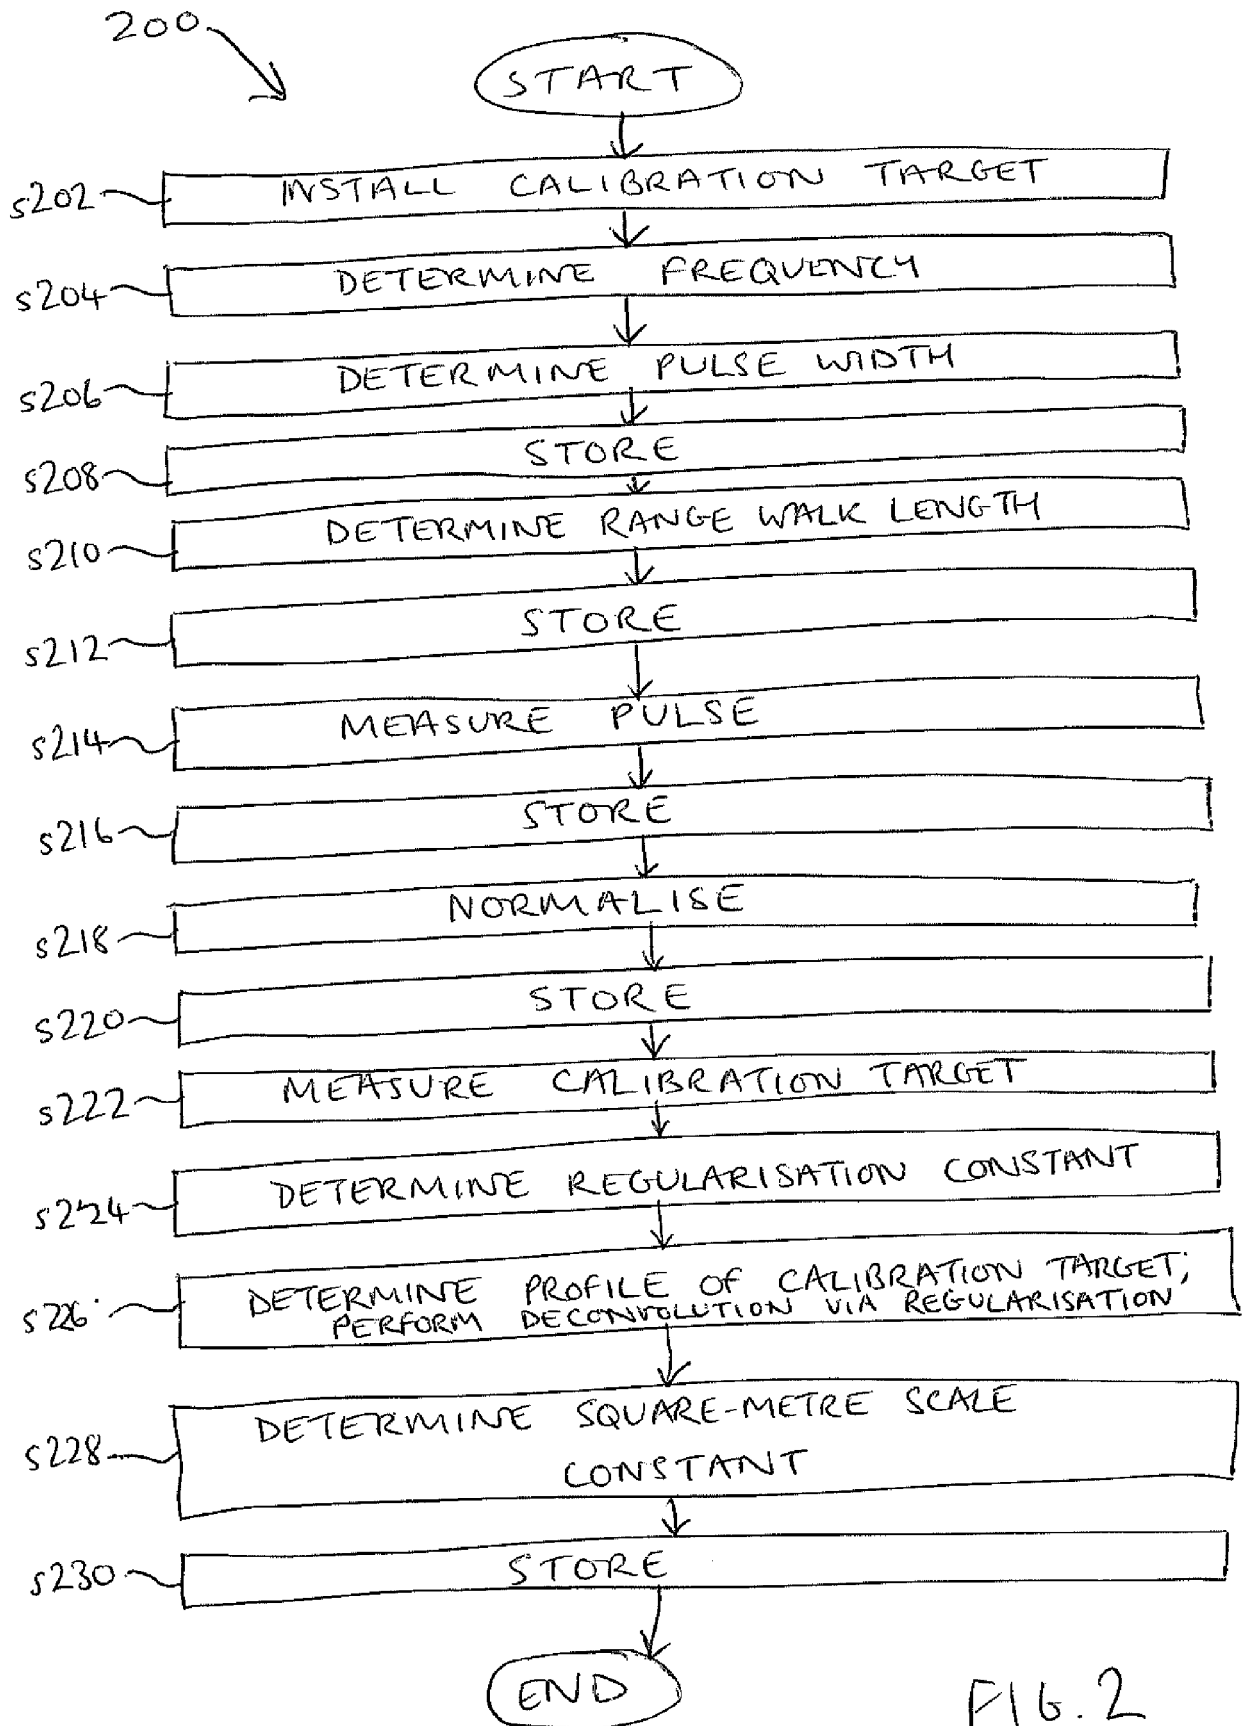 200
START
s202
INSTALL CALIBRATION TARGET
s204
DETERMINE FREQUENCY
s206
DETERMINE PULSE WIDTH
s208
STORE
s210
DETERMINE RANGE WALK LENGTH
s212
STORE
s214
MEASURE PULSE
s216
STORE
s218
NORMALISE
s220
STORE
s222
MEASURE CALIBRATION TARGET
s224
DETERMINE REGULARISATION CONSTANT
s226
DETERMINE PROFILE OF CALIBRATION TARGET;
PERFORM DECONVOLUTION VIA REGULARISATION
s228
DETERMINE SQUARE-METRE SCALE
CONSTANT
s230
STORE
END
FIG. 2